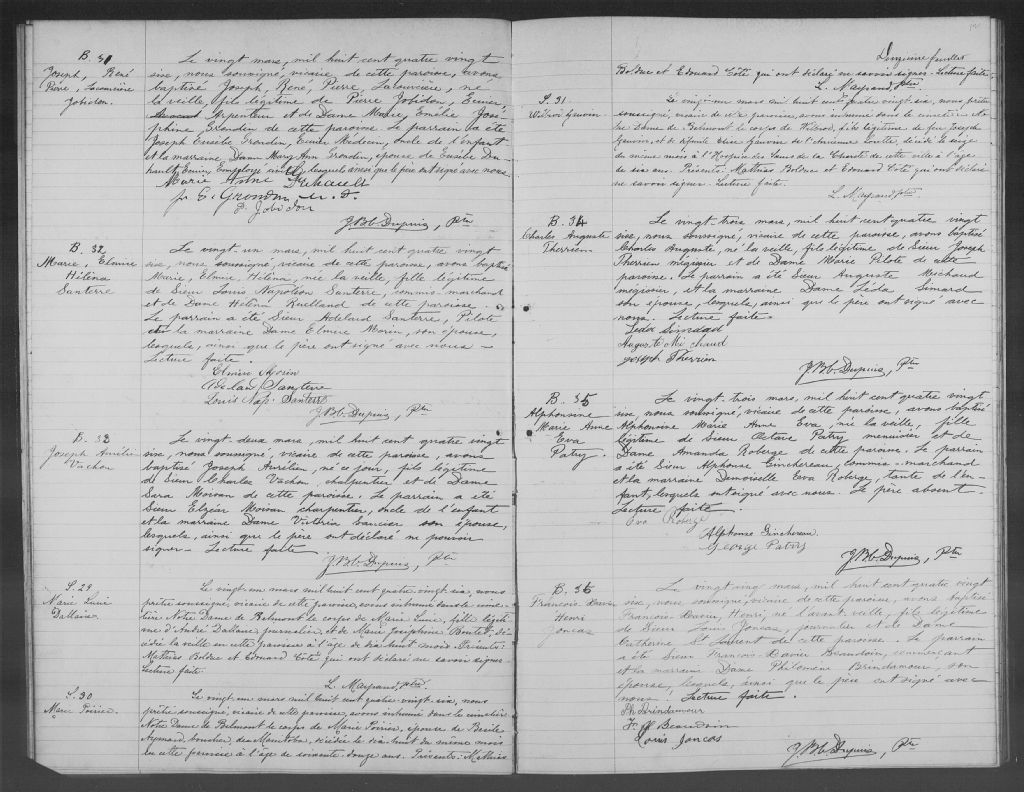 B. 31
Joseph, René
Pierre, Larivière
Jobidon.
Le vingt mars, mil huit cent quatre vingt
six, nous soussigné, vicaire, de cette paroisse, avons
baptisé Joseph, René, Pierre, né
la veille, fils légitime de Pierre Jobidon, Ecuier,
Arpenteur et de Dame Marie, Emélie José-
phine Grondin de cette paroisse. Le parrain a été
Joseph Eusèbe Grondin, Ecuier Médecin, oncle de l'enfant
et la marraine, Dame Mary Ann Grondin, épouse de Eusèbe Du-
hault, Ecuier, Employé civil, lesquels ainsi que le père ont signé avec nous.
Marie Anne Duhault
Jr E. Grondin M. D.
P. Jobidon
J. Bte. Dupuis, Ptre
B. 32
Marie, Elmire
Héléna
Santerre
Le vingt un mars, mil huit cent quatre vingt
six, nous soussigné, vicaire de cette paroisse, avons baptisé
Marie, Elmire Héléna, née la veille, fille légitime
de Sieur Louis Napoléon Santerre, commis marchand
et de Dame Héléna Ruelland de cette paroisse.
Le parrain a été Sieur Adélard Santerre, Pilote
et la marraine Dame Elmire Morin, son épouse,
lesquels, ainsi que le père ont signé avec nous -
Lecture faite.
Elmire Morin
Adelard Santerre
Louis Nap. Santerre
J. Bte. Dupuis, Ptre
B. 33
Joseph Aurélien
Vachon
Le vingt deux mars, mil huit cent quatre vingt
six, nous soussigné, vicaire de cette paroisse, avons
baptisé Joseph Aurélien, né ce jour, fils légitime
de Sieur Charles Vachon, charpentier et de Dame
Sara Moisan de cette paroisse. Le parrain a été
Sieur Elzéar Moisan charpentier, oncle de l'enfant
et la marraine Dame Victoria Vancier son épouse,
lesquels, ainsi que le père ont déclaré ne pouvoir
signer - Lecture faite
J. Bte. Dupuis, Ptre
S. 29
Marie Luce
Dallaire
Le vingt-un mars mil huit cent quatre-vingt-six, nous
prêtre soussigné, vicaire de cette paroisse, avons inhumé dans le cime-
tière Notre Dame de Belmont le corps de Marie Luce, fille légiti-
me d'André Dallaire journalier et de Marie Joséphine Boutet, dé-
cédée la veille en cette paroisse à l'âge de dix huit mois. Présents:
Mathias Bolduc et Edouard Côté qui ont déclaré ne savoir signer.
Lecture faite.
L. Mayrand, ptre
S. 30
Marie Poirier
Le vingt-un mars mil huit cent quatre-vingt-six, nous
prêtre soussigné, vicaire de cette paroisse, avons inhumé dans le cimetière
Notre Dame de Belmont le corps de Marie Poirier, épouse de Basile
Aymard, boucher, décédée le dix huit du même mois
en cette paroisse à l'âge de soixante-douze ans. Présents: Mathias
feuillet
Bolduc et Edouard Côté qui ont déclaré ne savoir signer. Lecture faite.
L. Mayrand, ptre
S. 31.
Wilbrod Gauvin
Le vingt-un mars mil huit cent quatre-vingt-six, nous prêtre
soussigné, vicaire de cette paroisse, avons inhumé dans le cimetière No-
tre Dame de Belmont le corps de Wilbrod, fils légitime de feu Joseph
Gauvin, et de défunte Elise Gauvin de l'Ancienne Lorette, décédé le seize
du même mois à l'Hospice des Sœurs de la Charité de cette ville à l'âge
de six ans. Présents: Mathias Bolduc et Edouard Côté qui ont déclaré
ne savoir signer. Lecture faite.
L. Mayrand, ptre
B. 34
Charles Auguste
Therrien
Le vingt-trois mars, mil huit cent quatre vingt
six, nous soussigné, vicaire de cette paroisse, avons baptisé
Charles Auguste, né la veille, fils légitime de Sieur Joseph
Therrien mégissier et de Dame Marie Pilote de cette
paroisse. Le parrain a été Sieur Auguste Michaud
mégissier, et la marraine Dame Léda Simard
son épouse, lesquels, ainsi que le père ont signé avec
nous. Lecture faite.
Leda Simard
Auguste Michaud
Joseph Therrien
J. Bte. Dupuis, Ptre
B. 35
Alphonsine
Marie Anne
Eva
Patry.
Le vingt trois mars, mil huit cent quatre vingt
six, nous soussigné, vicaire de cette paroisse, avons baptisé
Alphonsine Marie Anne Eva, née la veille, fille
légitime de Sieur Octave Patry menuisier et de
Dame Amanda Roberge de cette paroisse. Le parrain
a été Sieur Alphonse Ginchereau, commis-marchand
et la marraine Demoiselle Eva Roberge, tante de l'en-
fant, lesquels ont signé avec nous. Le père absent.
Lecture faite
Eva Roberge
Alphonse Ginchereau
George Patry
J. Bte. Dupuis, Ptre
B. 36
François Xavier
Henri
Joncas
Le vingt-cinq mars, mil huit cent quatre vingt
six, nous soussigné, vicaire de cette paroisse, avons baptisé
François-Xavier, Henri, né l'avant-veille, fils légitime
de Sieur Louis Joncas, journalier et de Dame
Catherine St Laurent de cette paroisse. Le parrain
a été Sieur François-Xavier Beaudoin, commerçant
et la marraine Dame Philomène Brindamour, son
épouse, lesquels, ainsi que le père ont signé avec
nous. Lecture faite.
Ph Brindamour
F. X Beaudoin
Louis Joncas
J. Bte. Dupuis, Ptre